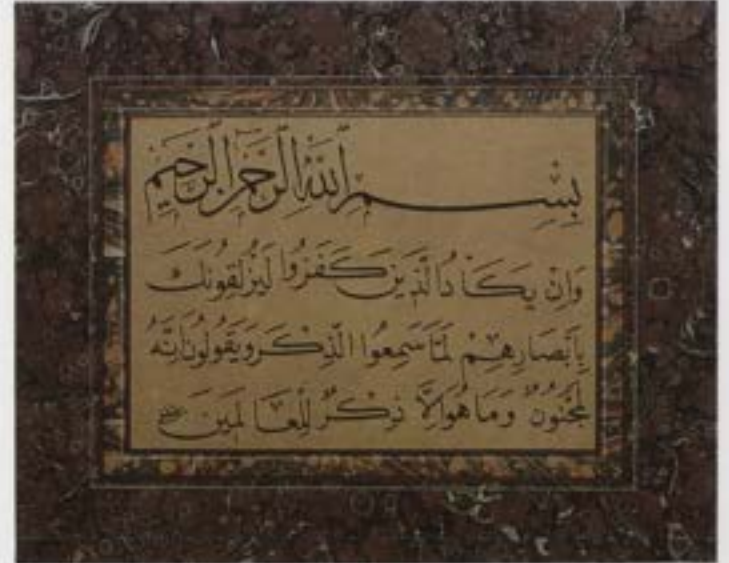 بِسْمِ اللَّهِ الرَّحْمَنِ الرَّحِيمِ
وَاِنْ يَكَادُ الَّذِينَ كَفَرُوا لَيُزْلِقُونَكَ
بِاَبْصَارِهِمْ لَمَّا سَمِعُوا الذِّكْرَ وَيَقُولُونَ اِنَّهُ
لَمَجْنُونٌ وَمَا هُوَ اِلَّا ذِكْرٌ لِلْعَالَمِينَ